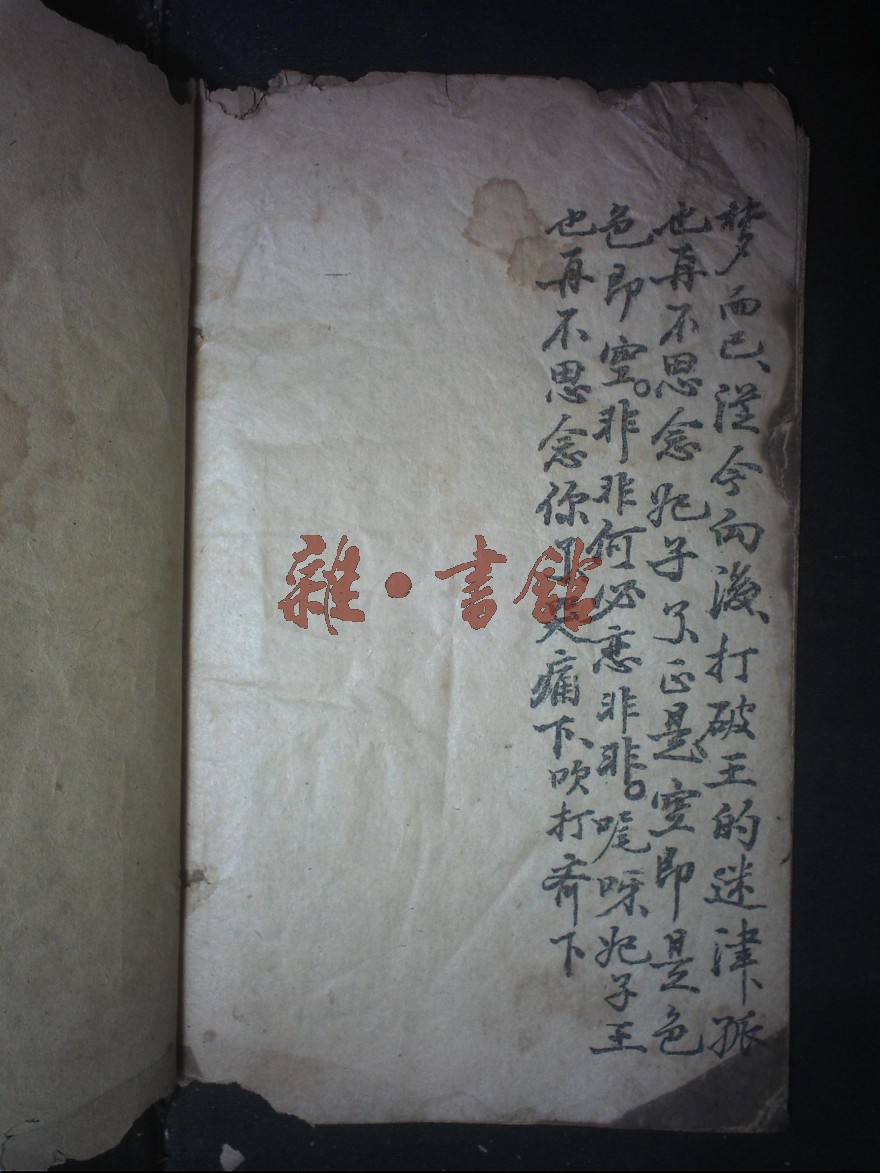 梦而已、從今向後、打破王的迷津、孤
也再不思念妃子了正是空即是色
色即空。非非何必恋非非。嗳呀妃子王
也再不思念你了哭痛下、吹打齊下
雜·書館